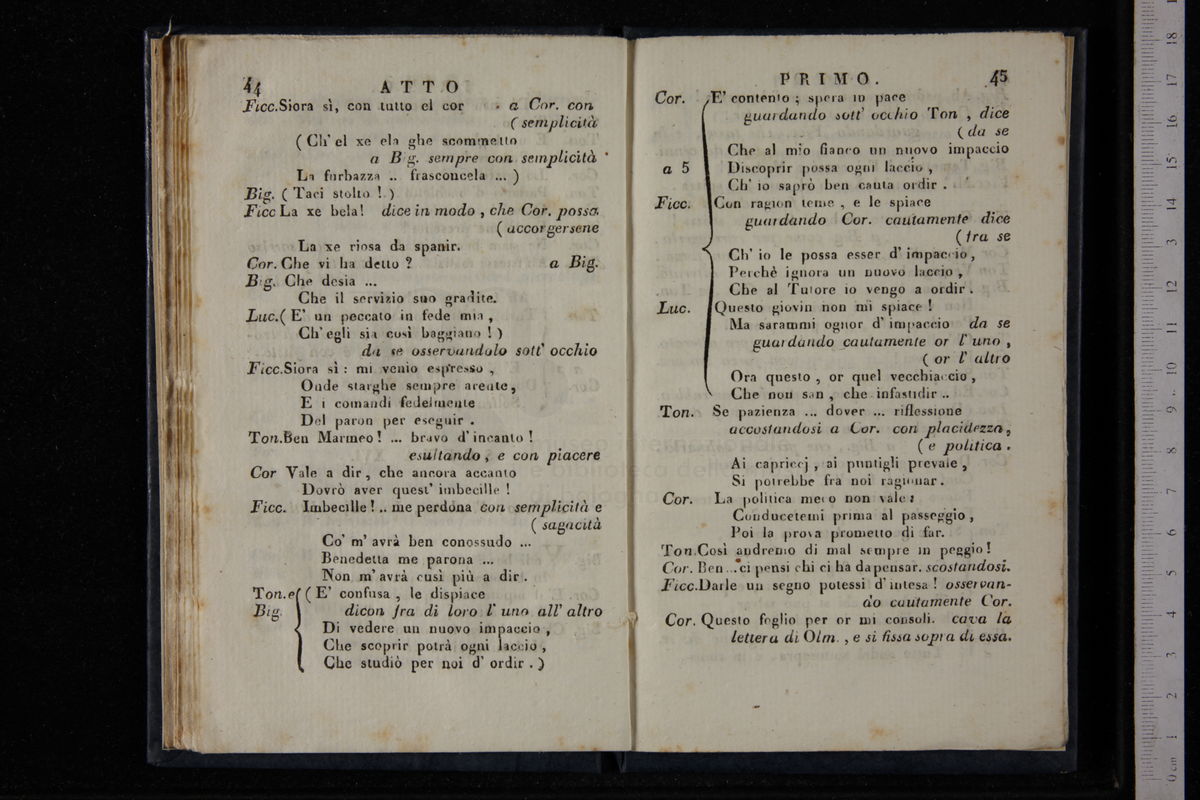 44 ATTO
Ficc.Siora sì, con tutto el cor a Cor. con
( semplicità
( Ch' el xe ela ghe scommetto
a Big. sempre con semplicità
La furbazza .. frasconcela ... )
Big. ( Taci stolto ! )
Ficc La xe bela! dice in modo , che Cor. possa
( accorgersene
La xe riosa da spanir.
Cor. Che vi ha detto ? a Big.
Big. Che desia ...
Che il servizio suo gradite.
Luc.( E' un peccato in fede mia ,
Ch' egli sia così baggiano ! )
da se osservandolo sott' occhio
Ficc.Siora sì : mi venio espresso ,
Onde starghe sempre arente,
E i comandi fedelmente
Del paron per eseguir .
Ton.Ben Marmeo ! ... bravo d' incanto !
esultando , e con piacere
Cor Vale a dir , che ancora accanto
Dovrò aver quest' imbecille !
Ficc. Imbecille ! .. me perdóna con semplicità e
( sagacità
Co' m' avrà ben conossudo ...
Benedetta me parona ...
Non m' avrà cusì più a dir .
Ton.e ( E' confusa , le dispiace
Big. dicon fra di loro l' uno all' altro
Di vedere un nuovo impaccio ,
Che scoprir potrà ogni laccio ,
Che studiò per noi d' ordir . )
PRIMO. 45
Cor. E' contento ; spera in pace
guardando sott' occhio Ton , dice
( da se
Che al mio fianco un nuovo impaccio
a 5 Discoprir possa ogni laccio ,
Ch' io saprò ben cauta ordir .
Ficc. Con ragion teme , e le spiace
guardando Cor. cautamente dice
( fra se
Ch' io le possa esser d' impaccio ,
Perchè ignora un nuovo laccio ,
Che al Tutore io vengo a ordir .
Luc. Questo giovin non mi spiace !
Ma sarammi ognor d' impaccio da se
guardando cautamente or l' uno ,
( or l' altro
Ora questo , or quel vecchiaccio ,
Che non san , che infastidir ..
Ton. Se pazienza ... dover ... riflessione
accostandosi a Cor. con placidezza ,
( e politica .
Ai capriccj , ai puntigli prevale ,
Si potrebbe fra noi ragionar .
Cor. La politica meco non vale :
Conducetemi prima al passeggio ,
Poi la prova prometto di far.
Ton.Così andremo di mal sempre in peggio !
Cor. Ben ... ci pensi chi ci ha da pensar. scostandosi.
Ficc.Darle un segno potessi d' intesa ! osservan-
do cautamente Cor.
Cor. Questo foglio per or mi consoli. cava la
lettera di Olm. , e si fissa sopra di essa.